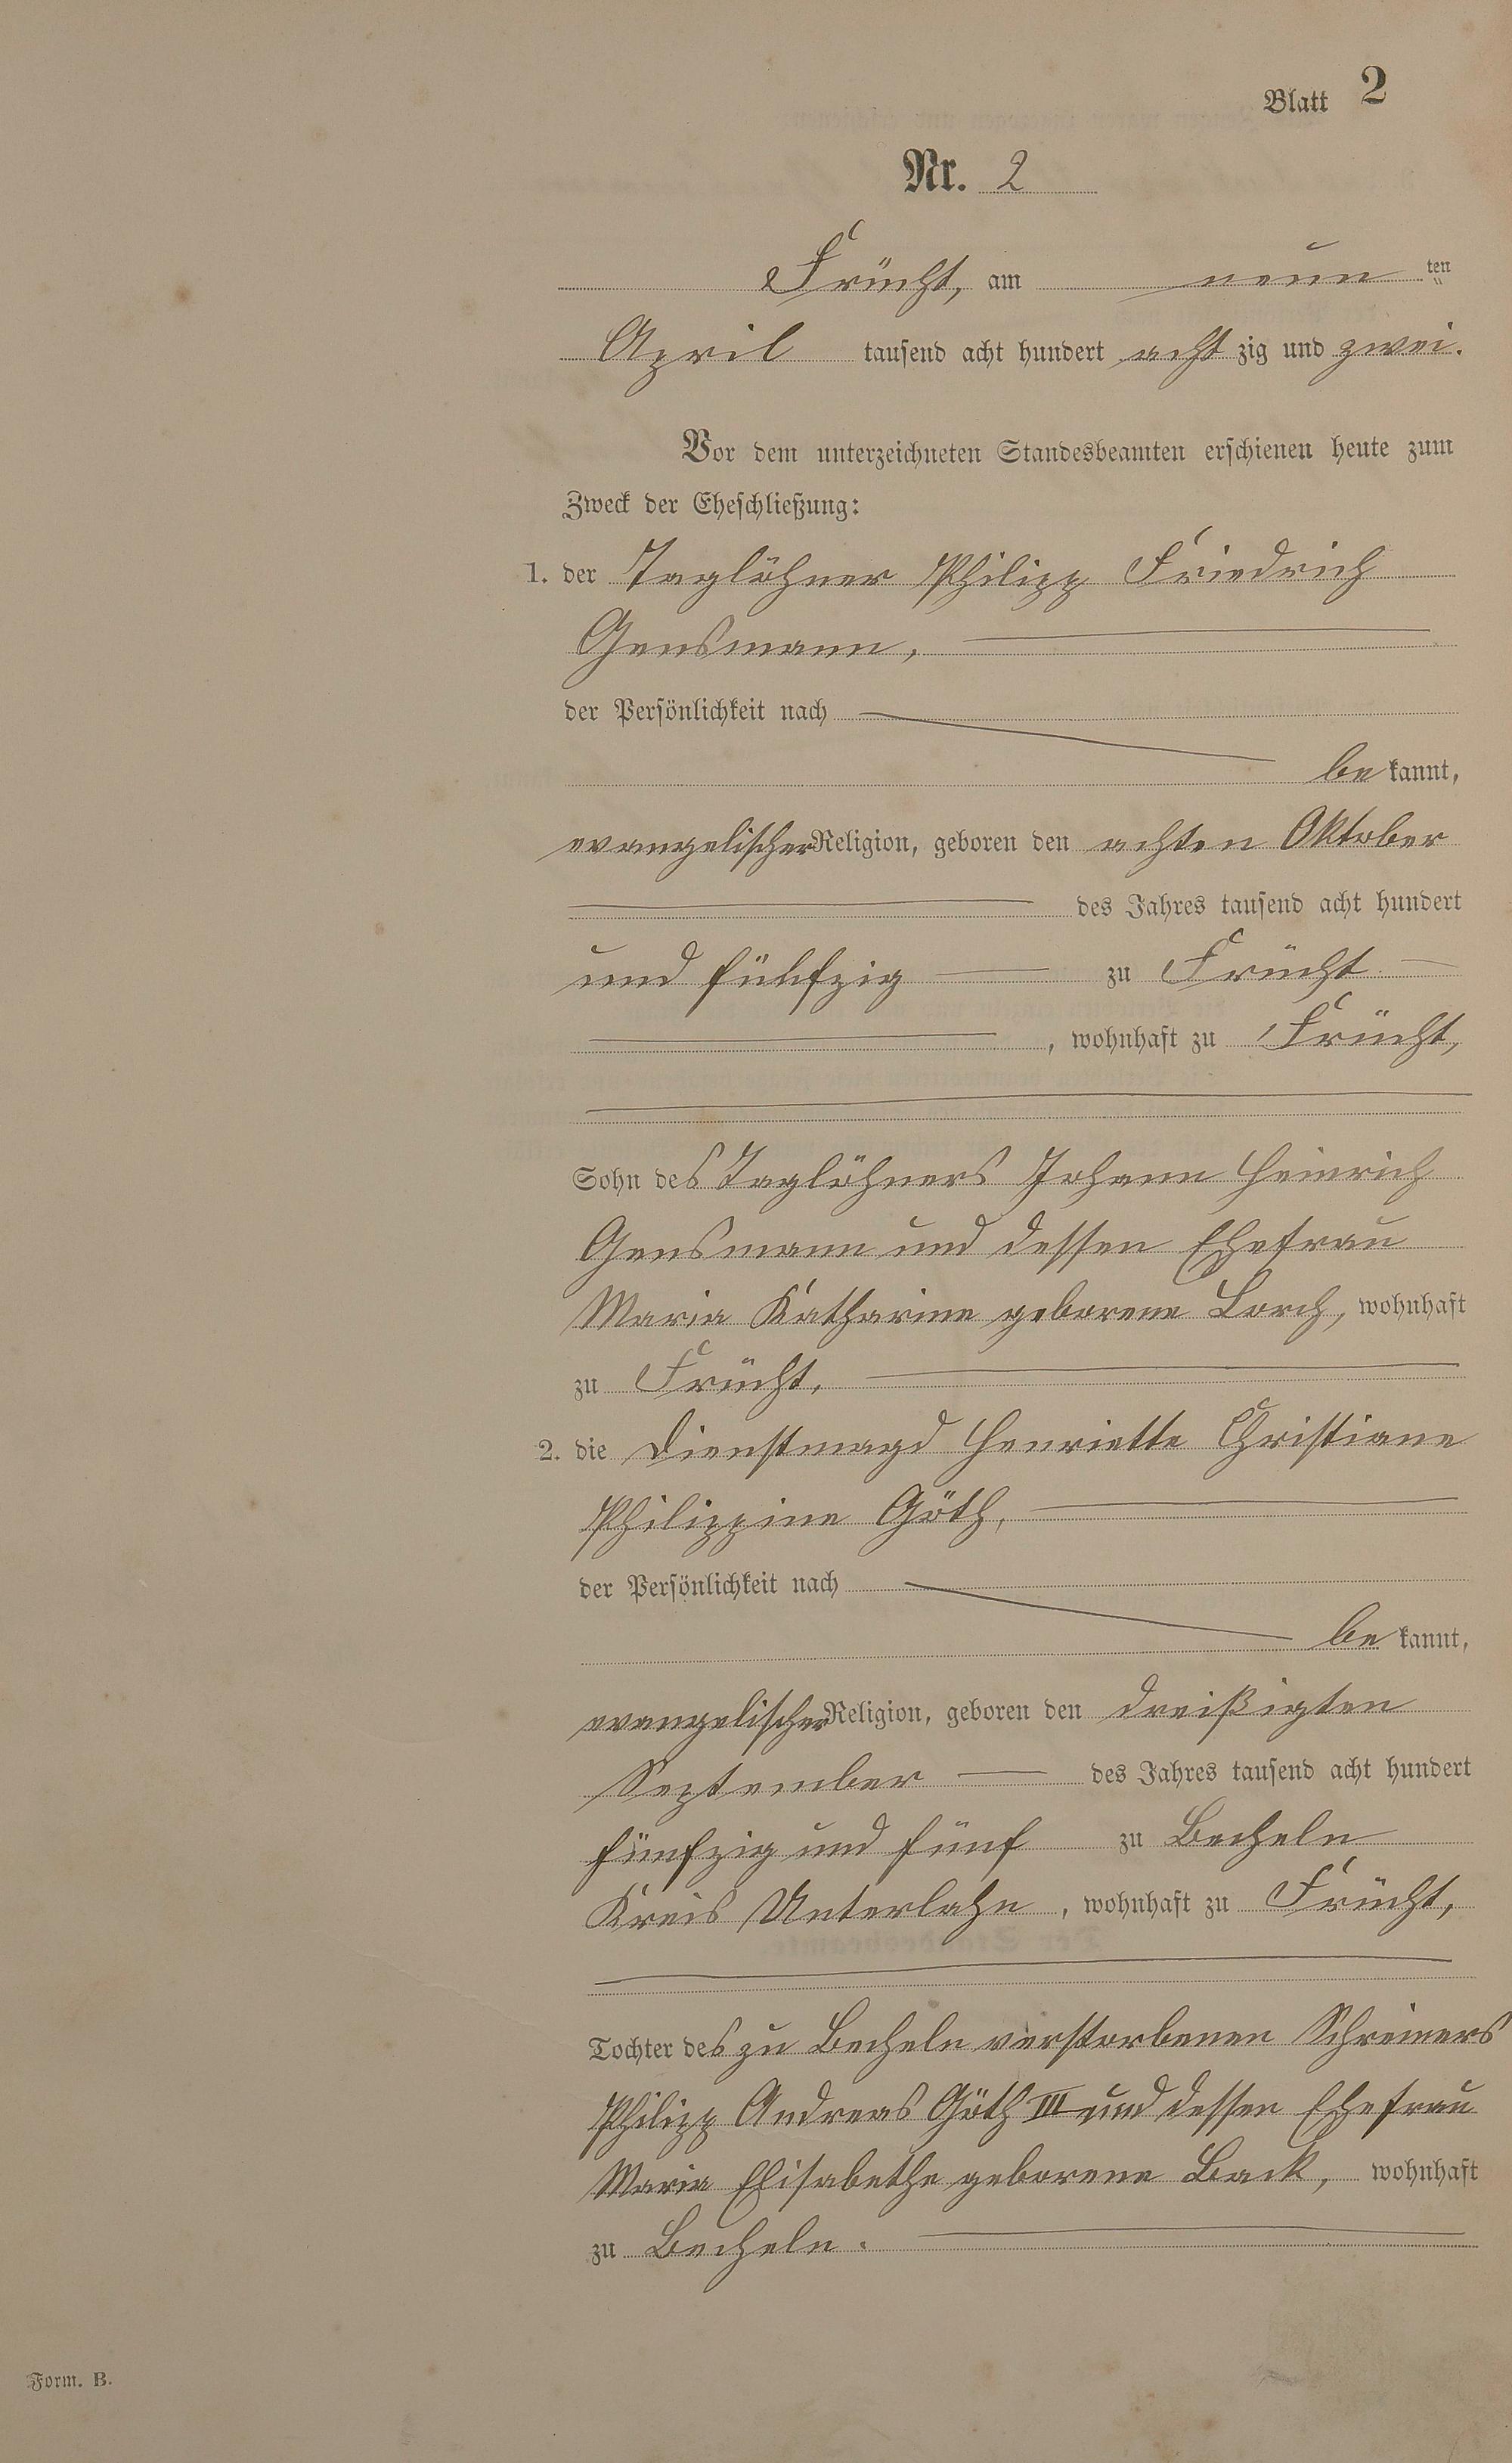 Blatt 2
Nr. 2
Frücht, am neun ten
April tausend acht hundert acht zig und zwei.
Vor dem unterzeichneten Standesbeamten erschienen heute zum
Zweck der Eheschließung:
1. der Taglöhner Philipp Friedrich
Gensmann,
der Persönlichkeit nach
be kannt,
evangelischer Religion, geboren den achten Oktober
des Jahres tausend acht hundert
und fünfzig zu Frücht
, wohnhaft zu Frücht,
Sohn des Taglöhners Johann Heinrich
Gensmann und dessen Ehefrau
Maria Katharine geborene Lorch, wohnhaft
zu Frücht,
2. die Dienstmagd Henriette Christiane
Philippine Göth,
der Persönlichkeit nach
be kannt,
evangelischer Religion, geboren den dreißigten
September des Jahres tausend acht hundert
fünfzig und fünf zu Becheln
Kreis Unterlahn, wohnhaft zu Frücht,
Tochter des zu Becheln verstorbenen Schreiners
Philipp Andreas Göth III und dessen Ehefrau
Maria Elisabethe geborene Back, wohnhaft
zu Becheln.
Form. B.